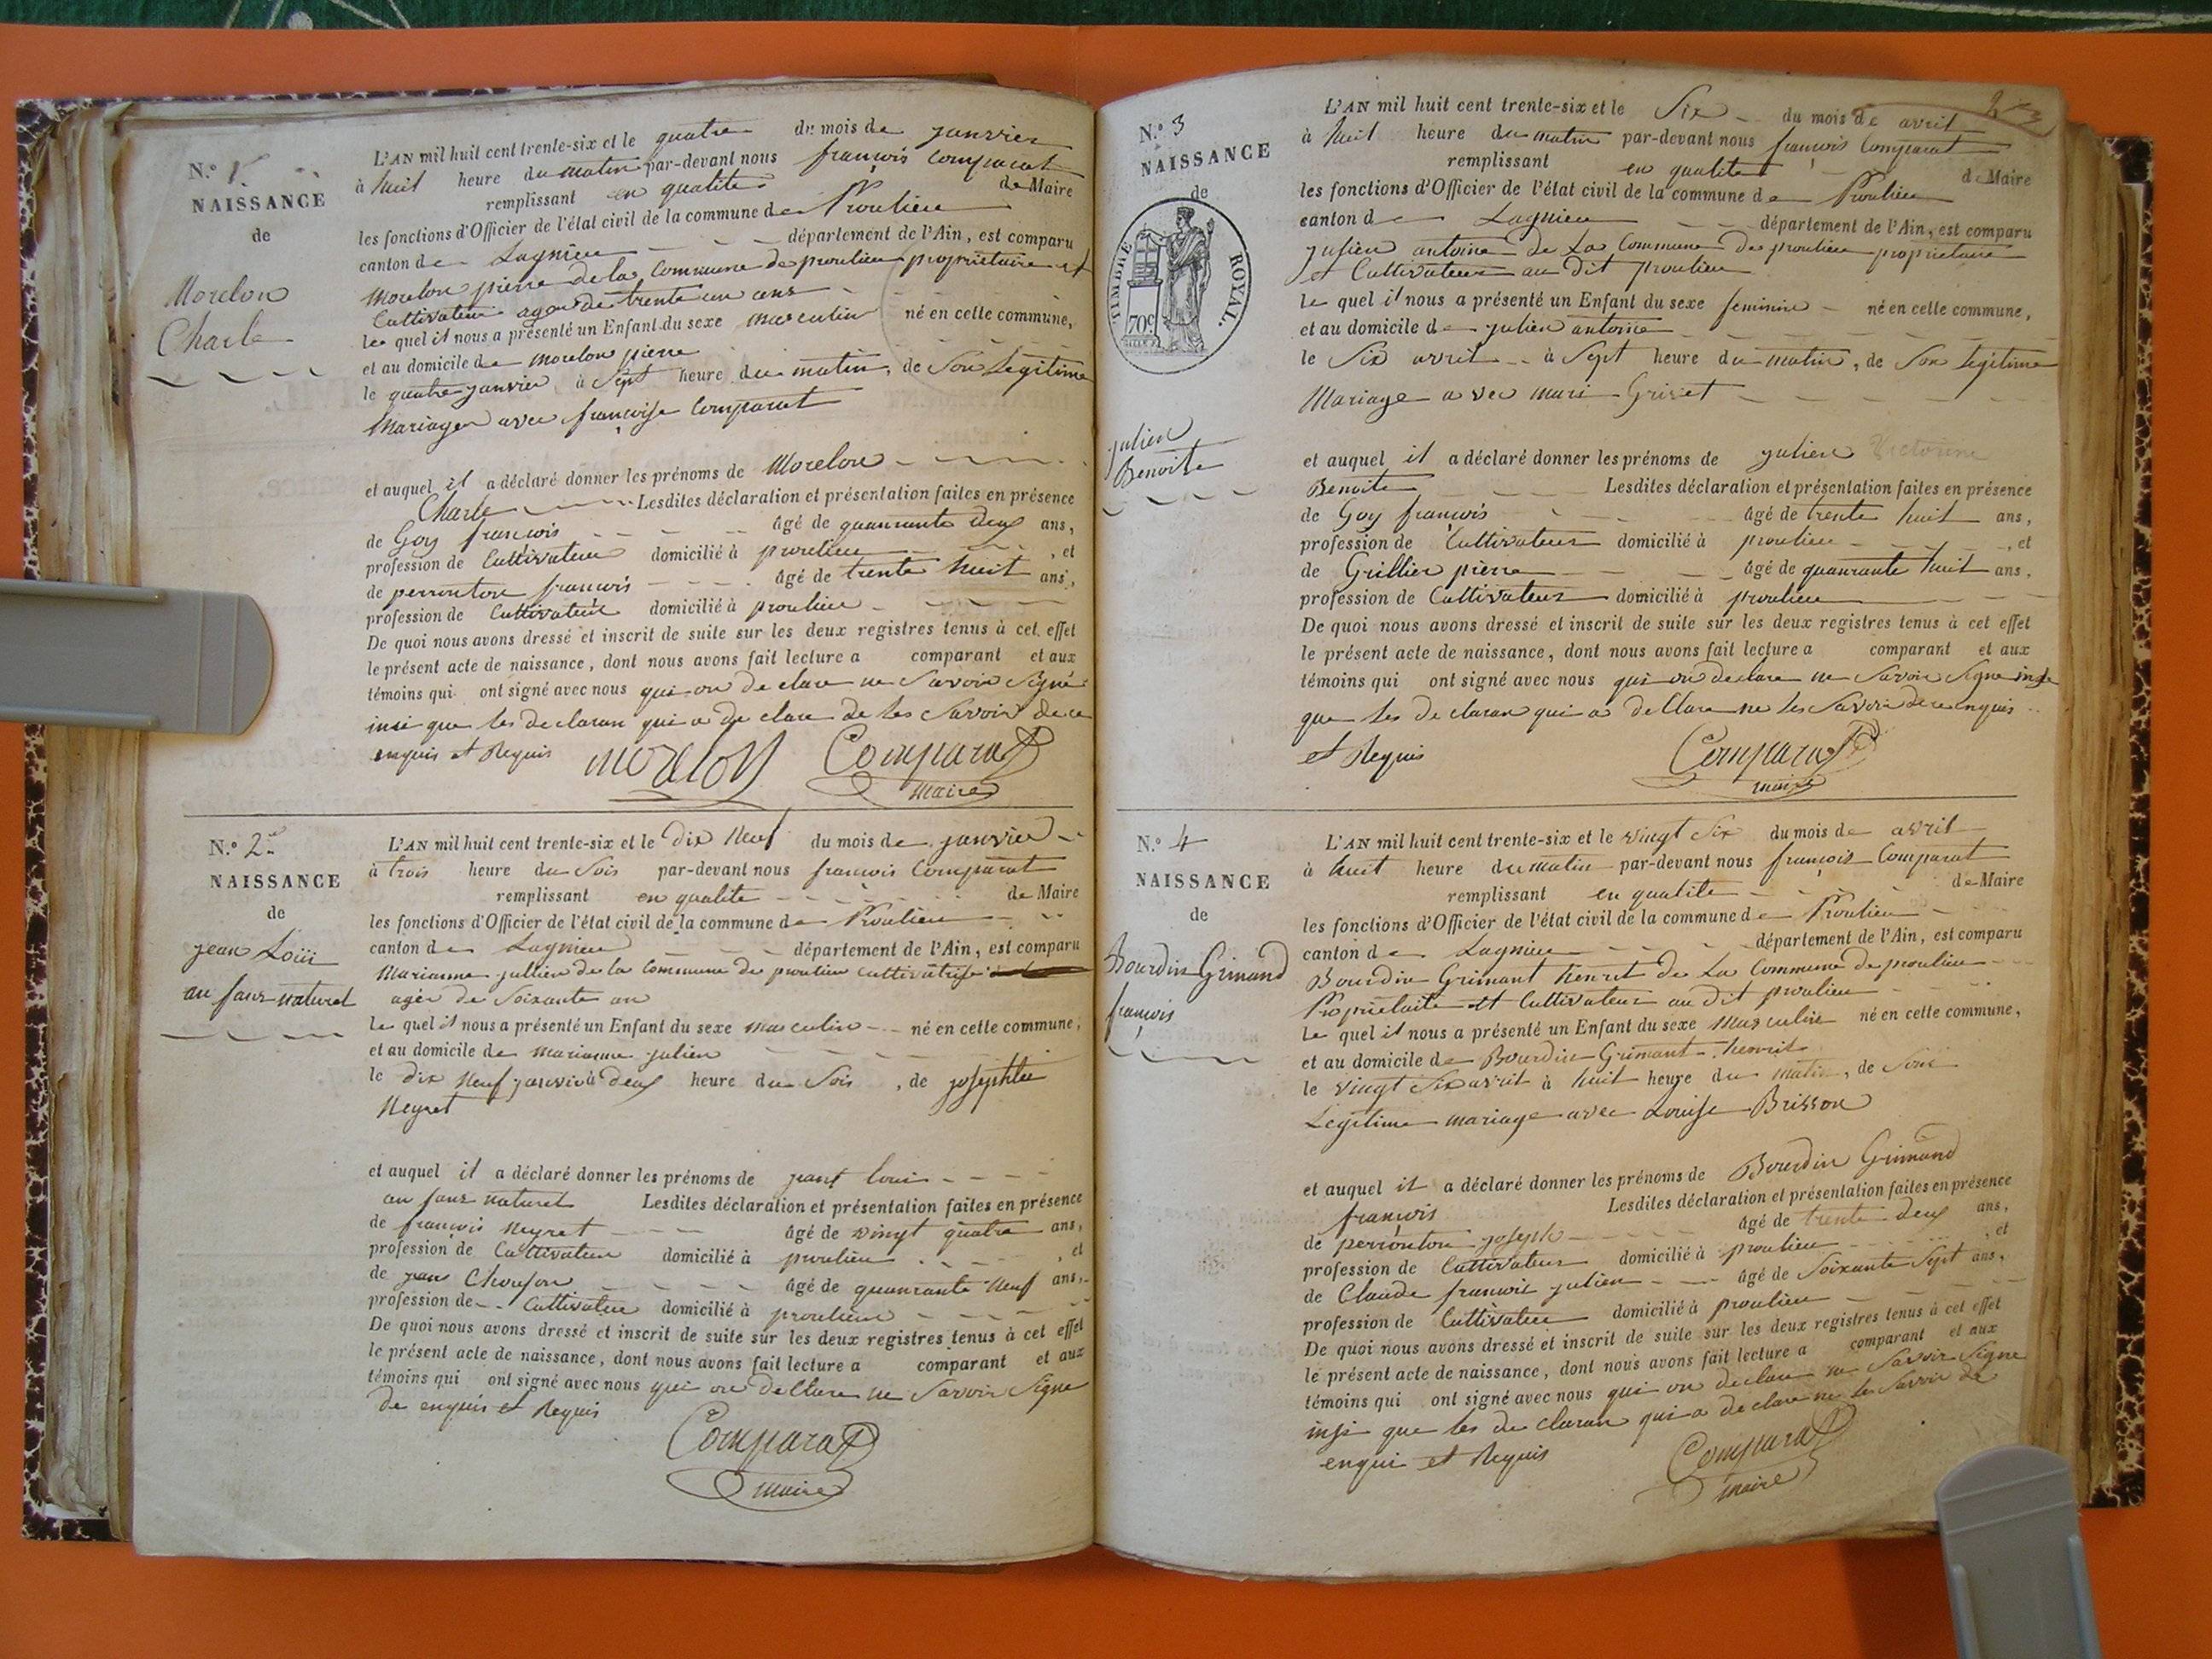 N.o 1.
NAISSANCE
de
Morelon
Charle
L'AN mil huit cent trente-six et le quatre du mois de janvier
à huit heure du matin par-devant nous françois Comparat
remplissant en qualite de Maire
les fonctions d'Officier de l'état civil de la commune de Proulieu
canton de Lagnieu département de l'Ain, est comparu
Morelon pierre de la Commune de proulieu propriétaire et
Cultivateur agée de trente un ans
le quel il nous a présenté un Enfant du sexe masculin né en cette commune,
et au domicile de morelon pierre
le quatre janvier à Sept heure du matin, de Son Legitime
Mariage avec françoise Comparat
et auquel il a déclaré donner les prénoms de Morelon
Charle Lesdites déclaration et présentation faites en présence
de Goy françois âgé de quanrante deux ans,
profession de Cultivateur domicilié à proulieu, et
de perrouton françois âgé de trente huit ans,
profession de Cultivateur domicilié à proulieu
De quoi nous avons dressé et inscrit de suite sur les deux registres tenus à cet effet
le présent acte de naissance, dont nous avons fait lecture a comparant et aux
témoins qui ont signé avec nous qui on de clare ne Savoir Signé
insi que les declaran qui a de clare de les Savoir de ce
enquis et Requis morelon Comparat
maire
N.o 2
NAISSANCE
de
jean Loüi
an fans naturel
L'AN mil huit cent trente-six et le dix Neuf du mois de janvier
à trois heure du Sois par-devant nous françois Comparat
remplissant en qualite de Maire
les fonctions d'Officier de l'état civil de la commune de Proulieu
canton de Lagnieu département de l'Ain, est comparu
Marianne jullien de la Commune de proulieu cultivatrise
agée de Soixante an
le quel il nous a présenté un Enfant du sexe masculin né en cette commune,
et au domicile de marianne julien
le dix Neuf janvié à deux heure du Sois, de josephte
Neyret
et auquel il a déclaré donner les prénoms de jant loui
an fans naturel Lesdites déclaration et présentation faites en présence
de françois Neyret âgé de vingt quatre ans,
profession de Cultivateur domicilié à proulieu, et
de jean âgé de quanrante Neuf ans,
profession de Cultivateur domicilié à proulieu
De quoi nous avons dressé et inscrit de suite sur les deux registres tenus à cet effet
le présent acte de naissance, dont nous avons fait lecture a comparant et aux
témoins qui ont signé avec nous qui on de Clare ne Savoir Signe
de enquis et Requis
Comparat
maire
N.o 3
NAISSANCE
de
TIMBRE ROYAL.
70c
julien
Benoite
L'AN mil huit cent trente-six et le Six du mois de avril
à huit heure du matin par-devant nous françois Comparat
remplissant en qualite de Maire
les fonctions d'Officier de l'état civil de la commune de Proulieu
canton de Lagnieu département de l'Ain, est comparu
julien antoine de La Commune de proulieu propriétaire
et Cultivateur au Dit proulieu
le quel il nous a présenté un Enfant du sexe feminin né en cette commune,
et au domicile de julien antoine
le Six avril à Sept heure du matin, de Son legitime
Mariage avec mari Grivet
et auquel il a déclaré donner les prénoms de julien Victorine
Benoite Lesdites déclaration et présentation faites en présence
de Goy françois âgé de trente huit ans,
profession de Cultivateur domicilié à proulieu, et
de Grillier pierre âgé de quanrante huit ans,
profession de Cultivateur domicilié à proulieu
De quoi nous avons dressé et inscrit de suite sur les deux registres tenus à cet effet
le présent acte de naissance, dont nous avons fait lecture a comparant et aux
témoins qui ont signé avec nous qui on declare ne Savoir Signe insi
que les De claran qui a de Clare ne les Savoir de ce enquis
et Requis Comparat
maire
N.o 4
NAISSANCE
de
Bourdin Grimand
françois
L'AN mil huit cent trente-six et le vingt Six du mois de avril
à huit heure du matin par-devant nous françois Comparat
remplissant en qualite de Maire
les fonctions d'Officier de l'état civil de la commune de Proulieu
canton de Lagnieu département de l'Ain, est comparu
Bourdin Grimant henrit de La Commune de proulieu
Proprietaite et Cultivateur au dit proulieu
le quel il nous a présenté un Enfant du sexe Masculin né en cette commune,
et au domicile de Bourdin Grimant henrit
le vingt Six avril à huit heure du matin, de Son
Legitime mariage avec Louise Brisson
et auquel il a déclaré donner les prénoms de Bourdin Grimand
françois Lesdites déclaration et présentation faites en présence
de perrouton joseph âgé de trente deux ans,
profession de Cultivateur domicilié à proulieu, et
de Claude françois julien âgé de Soixante Sept ans,
profession de Cultivateur domicilié à proulieu
De quoi nous avons dressé et inscrit de suite sur les deux registres tenus à cet effet
le présent acte de naissance, dont nous avons fait lecture a comparant et aux
témoins qui ont signé avec nous qui on declare ne Savoir Signe
insi que les de claran qui a declare ne les Savoir de
enqui et Requis Comparat
maire